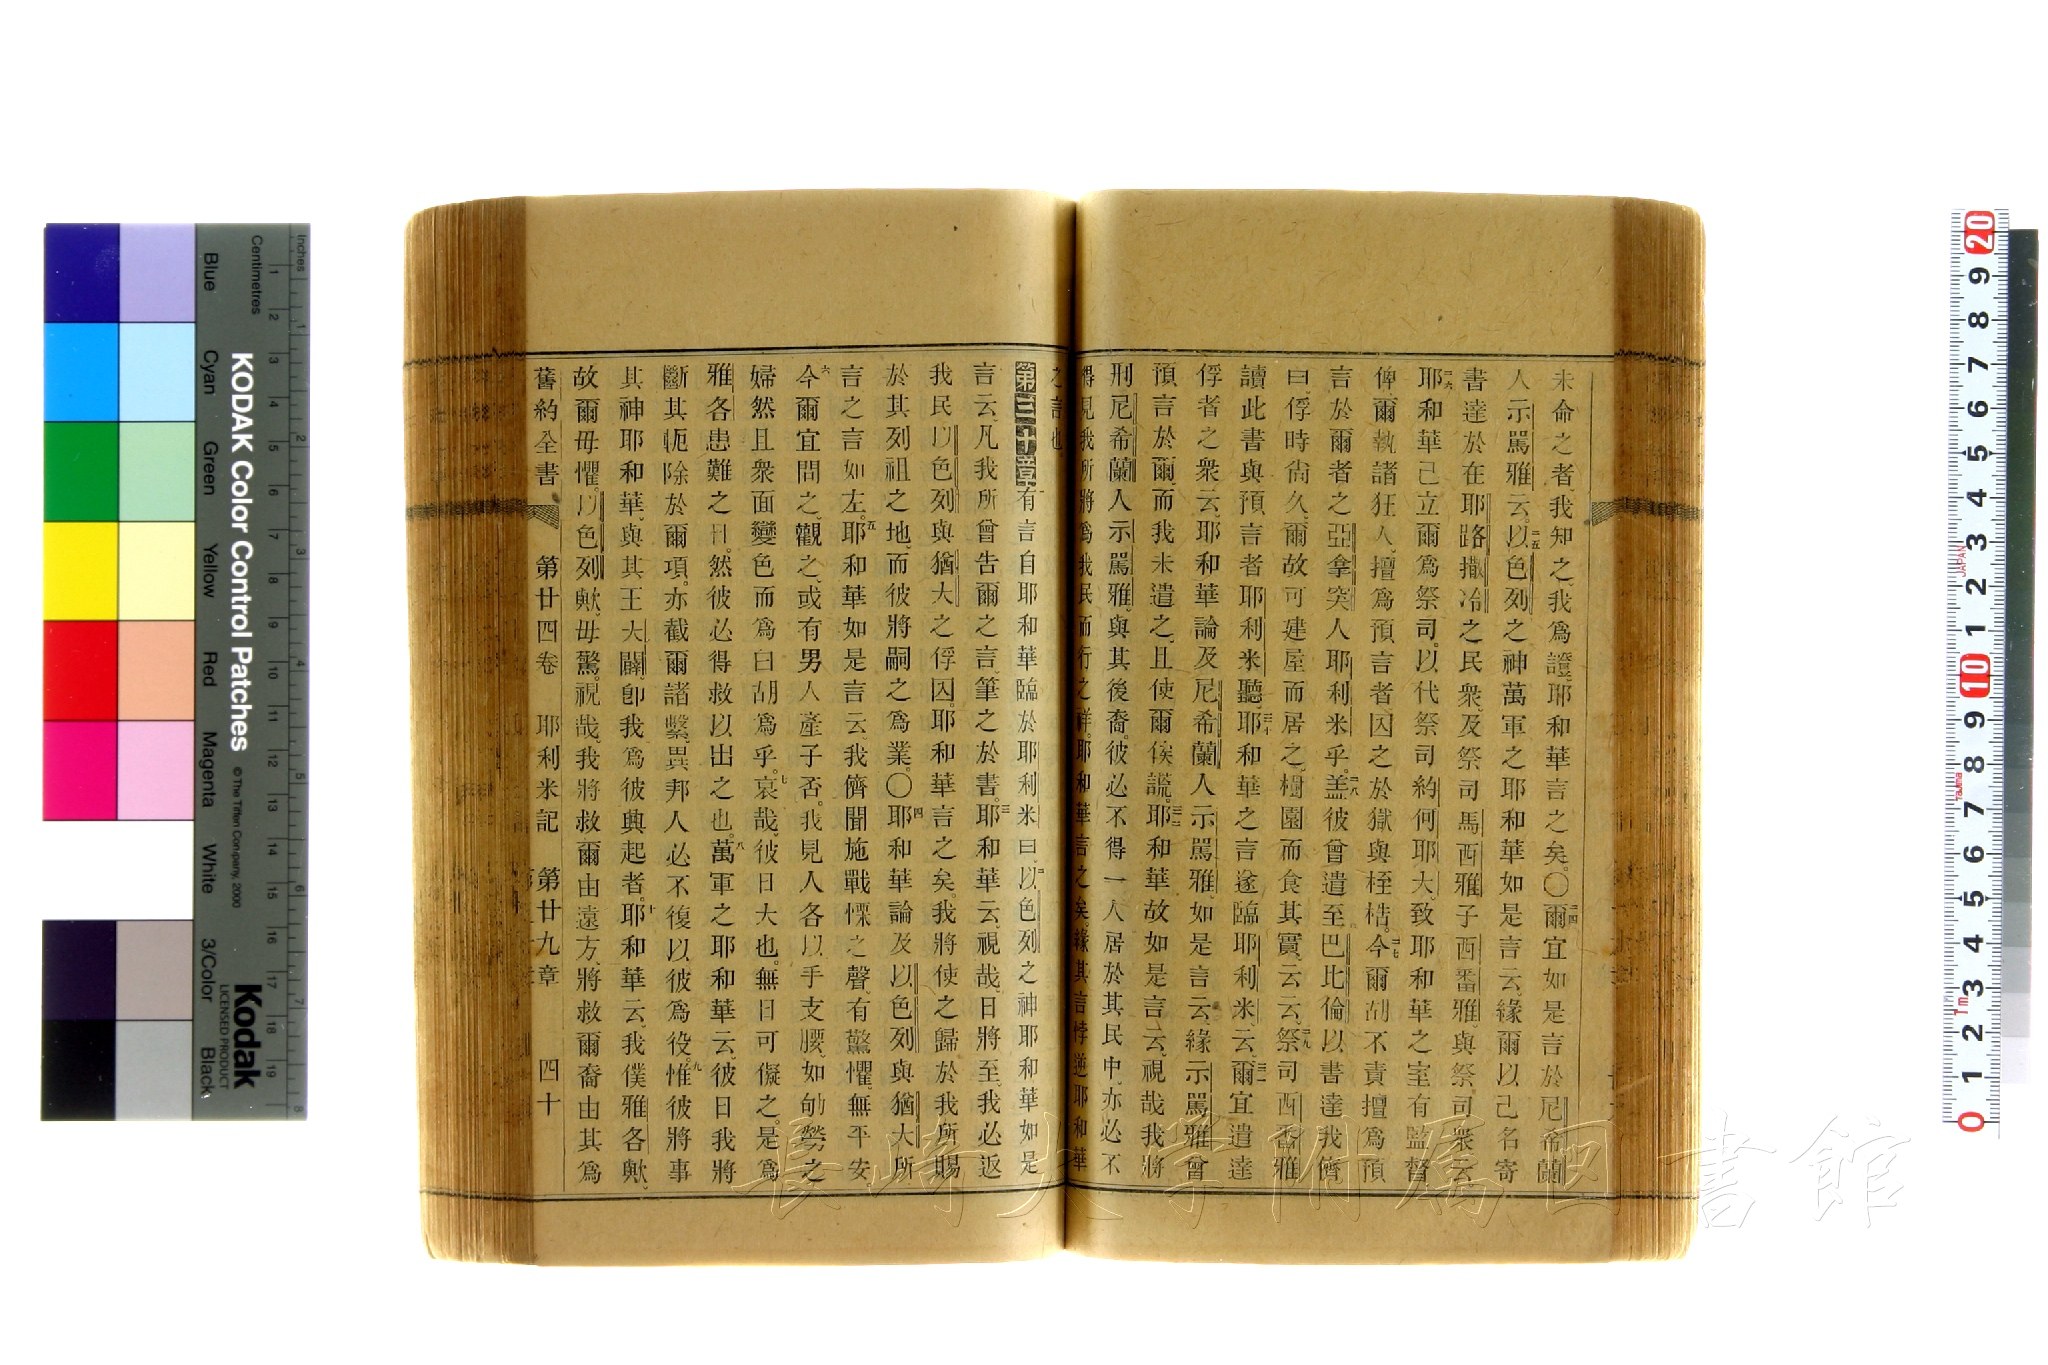 未命之者、我知之、我爲證、耶和華言之矣。〇二四爾宜如是言於尼希蘭
人示罵雅云、二五以色列之神萬軍之耶和華如是言云、緣爾以己名寄
書達於在耶路撒冷之民衆、及祭司馬西雅子西番雅、與祭司衆云、
二六耶和華己立爾爲祭司、以代祭司約何耶大、致耶和華之室有監督
俾爾執諸狂人、擅爲預言者囚之於獄與桎梏。二七今爾胡不責擅爲預
言於爾者之亞拿突人耶利米乎。二八盖彼曾遣至巴比倫以書達我儕
曰、俘時尙久、爾故可建屋而居之、樹園而食其實、云云、二九祭司西番雅
讀此書與預言者耶利米聽、三十耶和華之言遂臨耶利米、云、三一爾宜遣達
俘者之衆云、耶和華論及尼希蘭人示罵雅、如是言云、緣示罵雅曾
預言於爾、而我未遣之、且使爾俟謊。三二耶和華故如是言云、視哉我將
刑尼希蘭人示罵雅、與其後裔。彼必不得一人居於其民中、亦必不
得見我所將爲我民而行之祥。耶和華言之矣、緣其言悖逆耶和華
之言也
第三十章一有言自耶和華臨於耶利米曰、二以色列之神耶和華如是
言云、凡我所曾告爾之言、筆之於書。三耶和華云、視哉、日將至、我必返
我民以色列與猶大之俘囚。耶和華言之矣。我將使之歸於我所賜
於其列祖之地、而彼將嗣之爲業。〇四耶和華論及以色列與猶大所
言之言如左。五耶和華如是言云、我儕聞施戰慄之聲、有驚懼、無平安
六今爾宜問之、觀之、或有男人產子否。我見人各以手支腰、如劬勞之
婦然、且衆面變色而爲白、胡爲乎。七哀哉。彼日大也。無日可儗之。是爲
雅各患難之日。然彼必得救以出之也。八萬軍之耶和華云、彼日我將
斷其軛除於爾項。亦截爾諸繫、異邦人必不復以彼爲役。九惟彼將事
其神耶和華、與其王大闢、卽我爲彼興起者。十耶和華云、我僕雅各歟、
故爾毋懼、以色列歟、毋驚。視哉、我將救爾由遠方、將救爾裔由其爲
舊約全書 第廿四卷 耶利米記 第廿九章 四十
長崎大学附属図書館
KODAK Color Control Patches
© The Tiffen Company, 2000
Kodak
LICENSED PRODUCT
Inches
Centimetres
Blue
Cyan
Green
Yellow
Red
Magenta
White
3/Color
Black
1 2 3 4 5 6 7 8 9 10 11 12 13 14 15 16 17 18 19
1 2 3 4 5 6 7 8
20 9 8 7 6 5 4 3 2 1 10 9 8 7 6 5 4 3 2 1 0
JAPAN
Tajima
Tm